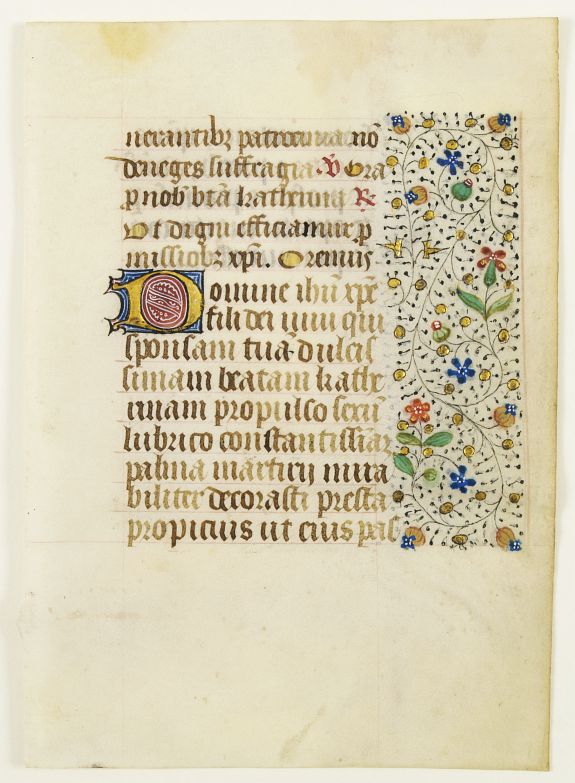 nerantibꝫ patrocinia nō
deneges suffragia. ℣ Ora
ꝓ nob̄ bt̄a katherina ℟
Ut digni efficiamur ꝓ
missiōibꝫ xp̄i. Oremus
Domine ihū xp̄e
fili dei uiui qui
sponsam tuā dulcis
simam beatam kathe
rinam propulso sexū
lubrico constantissīaꝫ
palma martirij mira
biliter decorasti presta
propicius ut eius pas